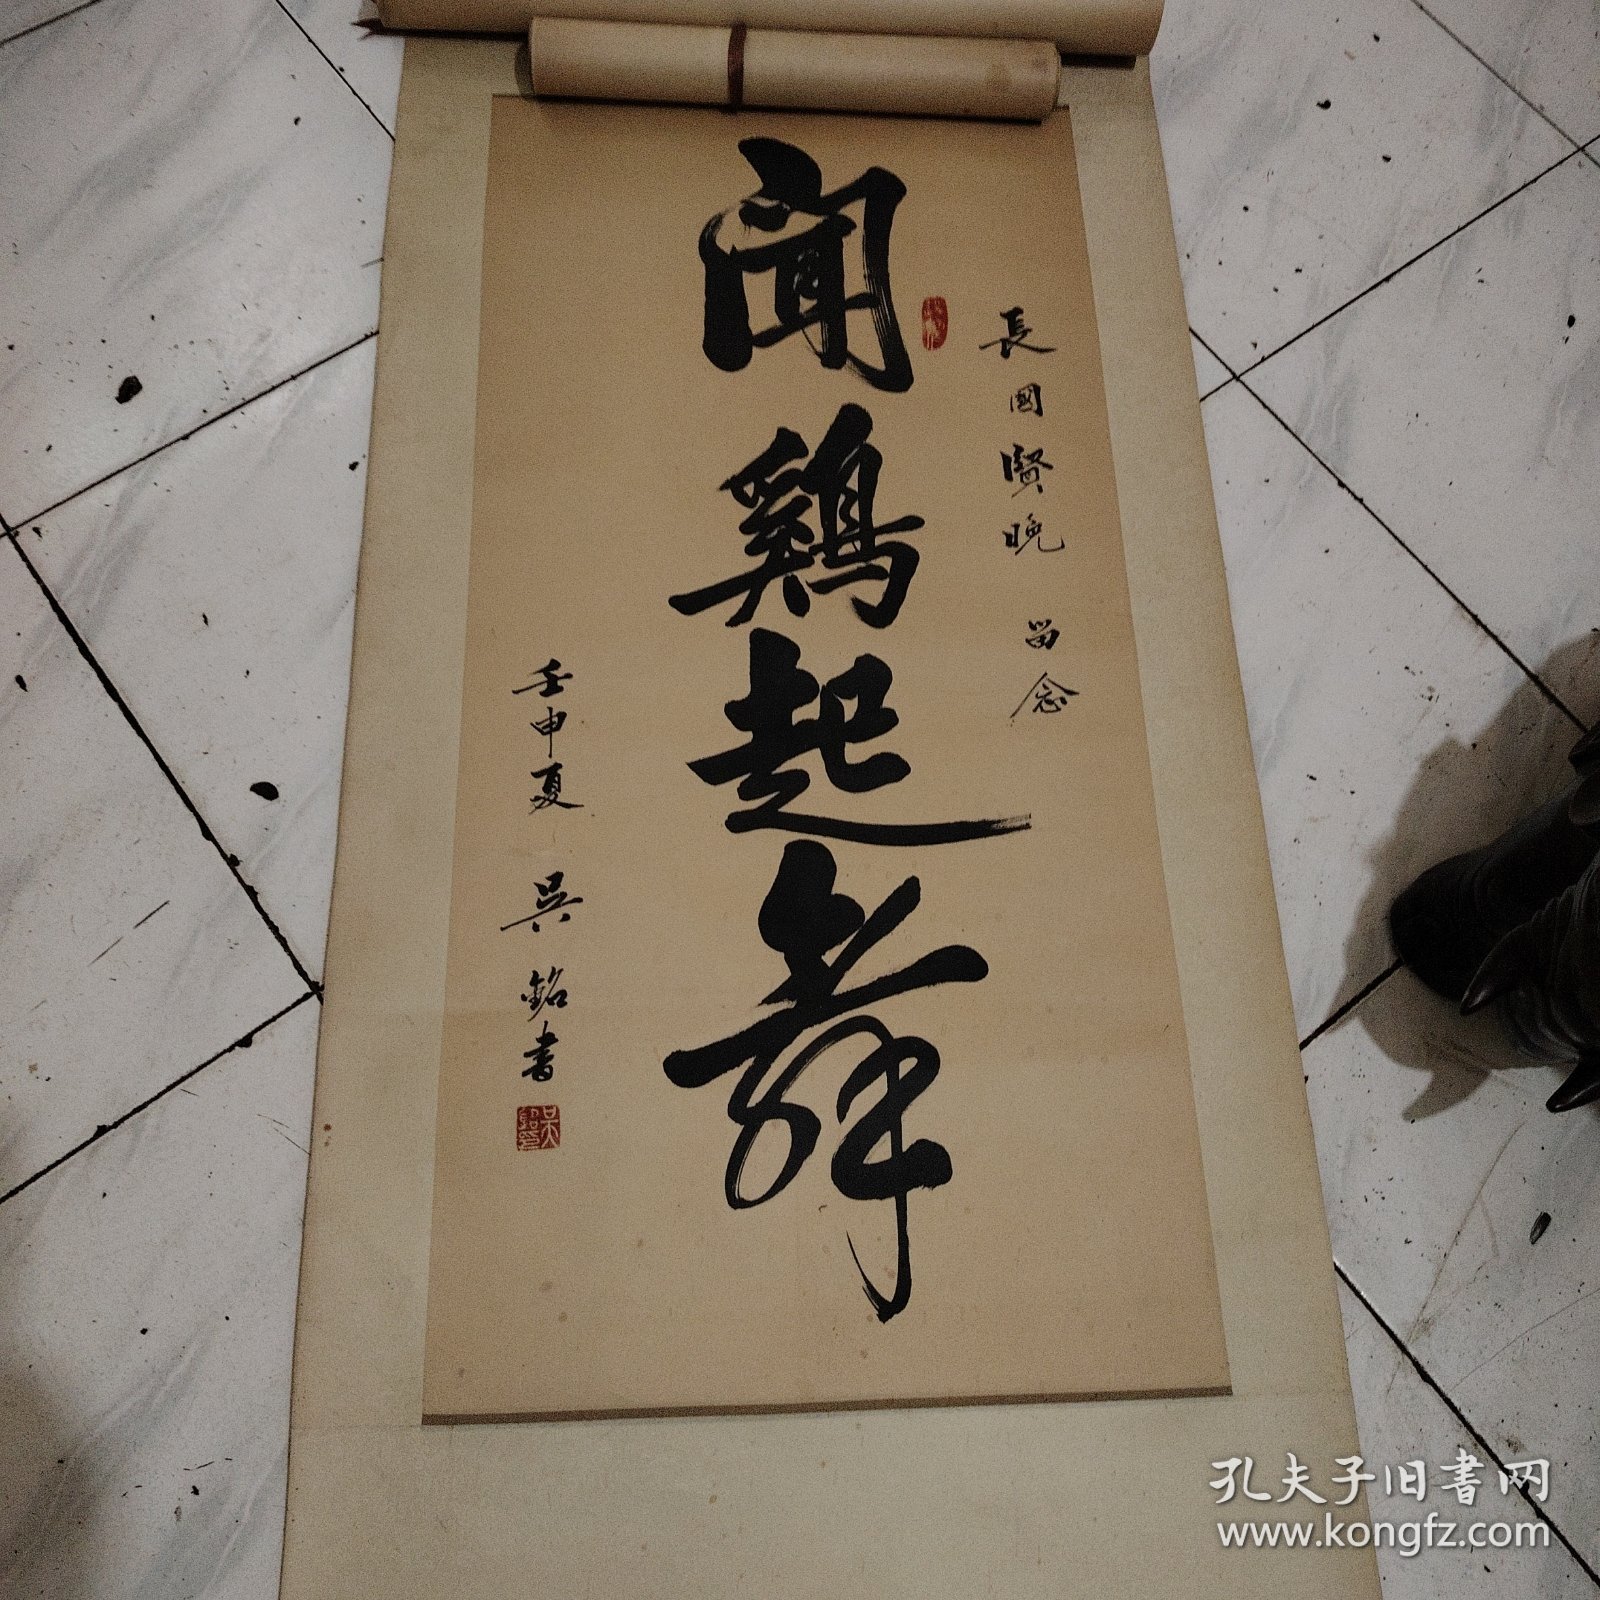 長國賢晚 留念
聞鷄起舞
壬申夏 吳銘書
孔夫子旧书网
www.kongfz.com